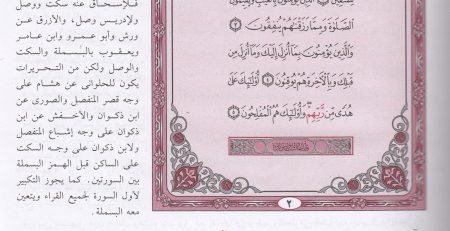 فلإسحاق عنه سكت ووصل
ولإدريس وصل، والأزرق عن
ورش وأبو عمرو وابن عامر
ويعقوب بالبسملة والسكت
والوصل ولكن من التحريرات
يكون للحلوانى عن هشام على
وجه قصر المنفصل والصورى عن
ابن ذكوان والأخفش عن ابن
ذكوان على وجه إشباع المتصل
ولابن ذكوان على وجه السكت
على الساكن قبل الهمز البسملة
بين السورتين. كما يجوز التكبير
لأول السورة لجميع القراء ويتعين
معه البسملة.
ٱلصَّلَوٰةَ وَمِمَّا رَزَقْنَٰهُمْ يُنفِقُونَ ٣
وَٱلَّذِينَ يُؤْمِنُونَ بِمَآ أُنزِلَ إِلَيْكَ وَمَآ أُنزِلَ مِن
قَبْلِكَ وَبِٱلْءَاخِرَةِ هُمْ يُوقِنُونَ ٤ أُو۟لَٰٓئِكَ عَلَىٰ
هُدًى مِّن رَّبِّهِمْ وَأُو۟لَٰٓئِكَ هُمُ ٱلْمُفْلِحُونَ ٥
٢